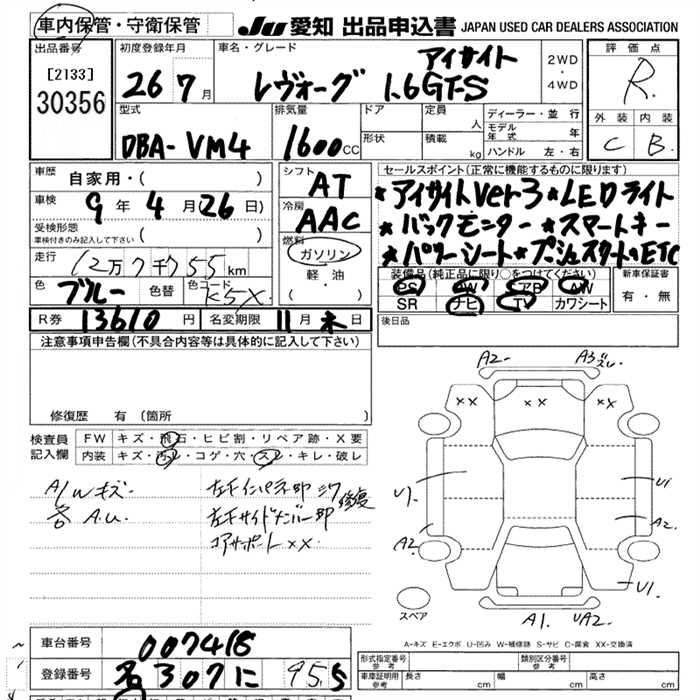 車内保管・守衛保管 JU 愛知 出品申込書 JAPAN USED CAR DEALERS ASSOCIATION
出品番号 初度登録年月 車名・グレード 評価点
[2133]
30356
26 7月 レヴォーグ アイサイト 1.6GT-S 2WD・4WD R
型式 排気量 ドア 定員 人 ディーラー・並行 外装 内装
DBA-VM4 1600CC 形状 積載 kg モデル年式 年 C B
ハンドル 左・右
車歴 自家用・( )
シフト AT
セールスポイント(正常に機能するものに限ります)
車検 9年4月26日)
冷房 AAC
★アイサイトver3★LEDライト
★バックモニター★スマートキー
★パワーシート★プッシュスタート、ETC
受検形態
車検付きのみ記入して下さい ( )
燃料 ガソリン・軽油 ( )
走行 12万7千755km
装備品(純正品に限り○をつけてください) 新車保証書
PS PW AB AW 有・無
SR ナビ TV カワシート
色 ブルー 色替 色コード K5X
R券 13610円 名変期限 11月末日
後日品
注意事項申告欄(不具合内容等は具体的に記入して下さい)
修復歴 有(箇所
検査員記入欄 FW キズ・飛石・ヒビ割・リペア跡・X要
内装 キズ・汚レ・コゲ・穴・スレ・キレ・破レ
A/Wキズ
各A.U.
左インパネ部シワ修復
左サイドメンバー部
コアサポートXX
A2 A3 ズレ
XX XX XX
U1 U1
A2 A2
U1
スペア A1 UA2
A-キズ E-エクボ U-凹み W-補修跡 S-サビ C-腐食 XX-交換済
車台番号 007418
形式指定番号 参考 類別区分番号 参考
登録番号 名 307 に 95-5
車庫証明用 参考 長さ cm 幅 cm 高さ cm